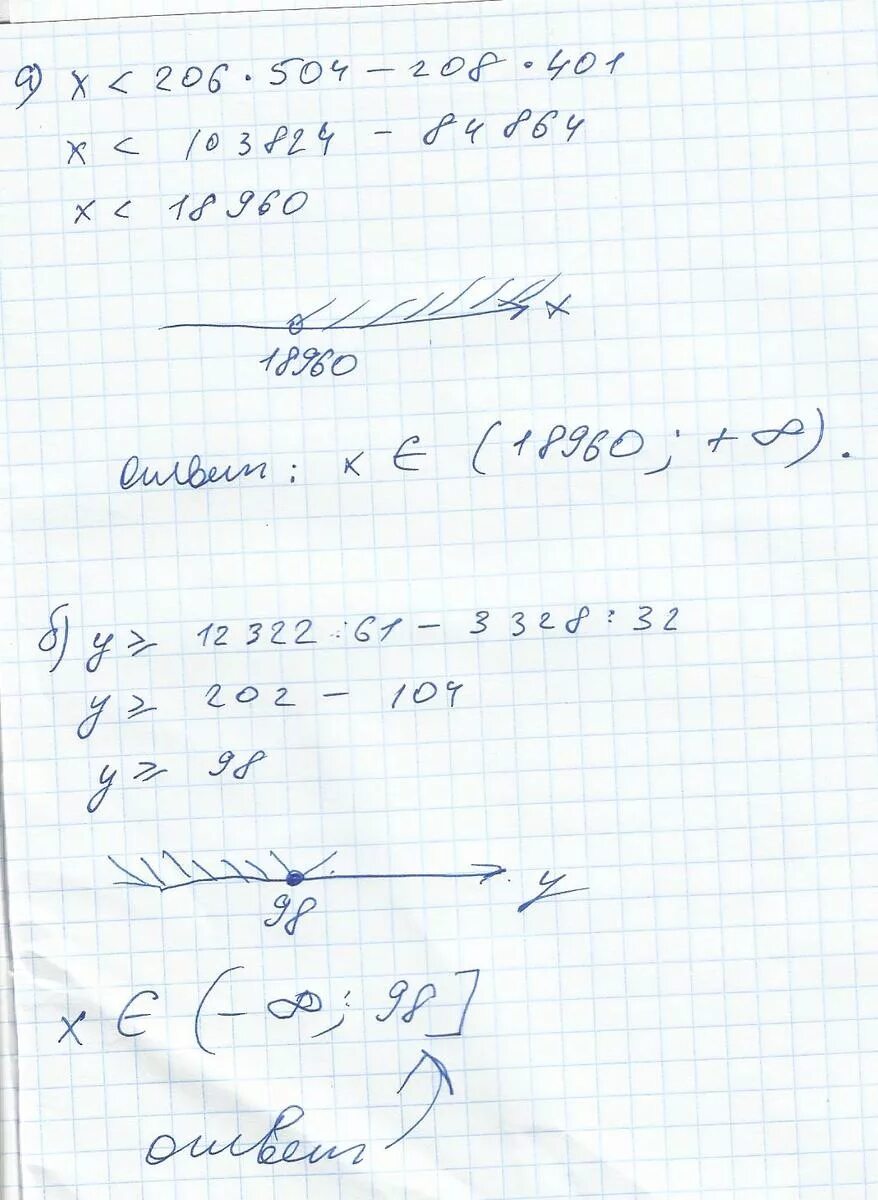 а) x < 206 · 504 – 208 · 401
x < 103824 – 84864
x < 18960
x
18960
ответ: x ∈ (18960; + ∞).
б) y ≥ 12322 : 61 – 3328 : 32
y ≥ 202 – 104
y ≥ 98
y
98
x ∈ (– ∞; 98]
ответ